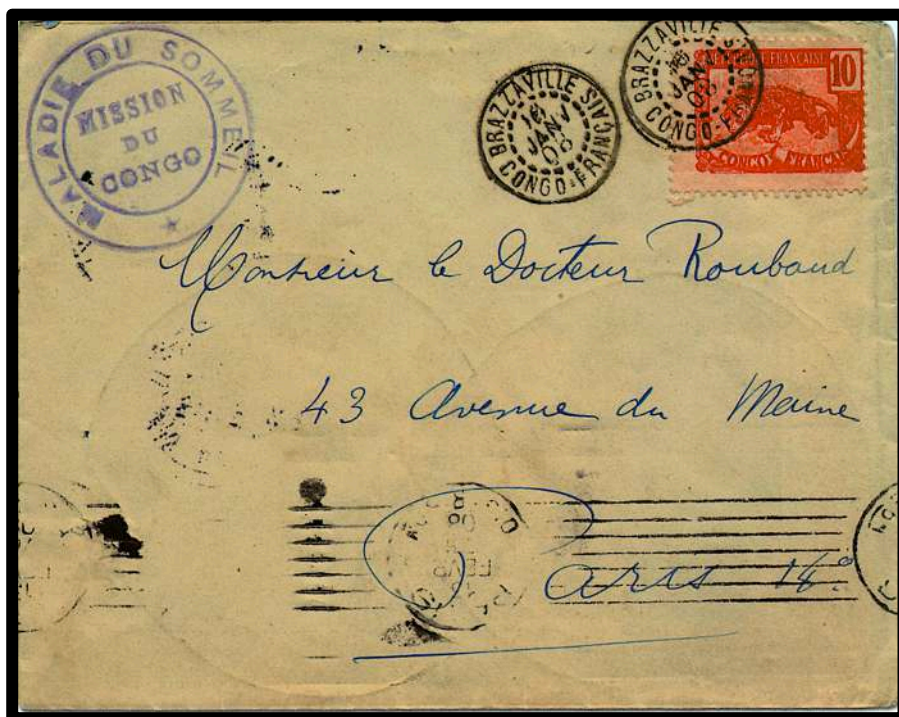 MALADIE DU SOMMEIL
MISSION
DU
CONGO
BRAZZAVILLE
JANV
08
CONGO-FRANÇAIS
BRAZZAVILLE
JANV
08
CONGO-FRANÇAIS
10
CONGO FRANÇAIS
Monsieur le Docteur Roubaud
43 Avenue du Maine
Paris 14e